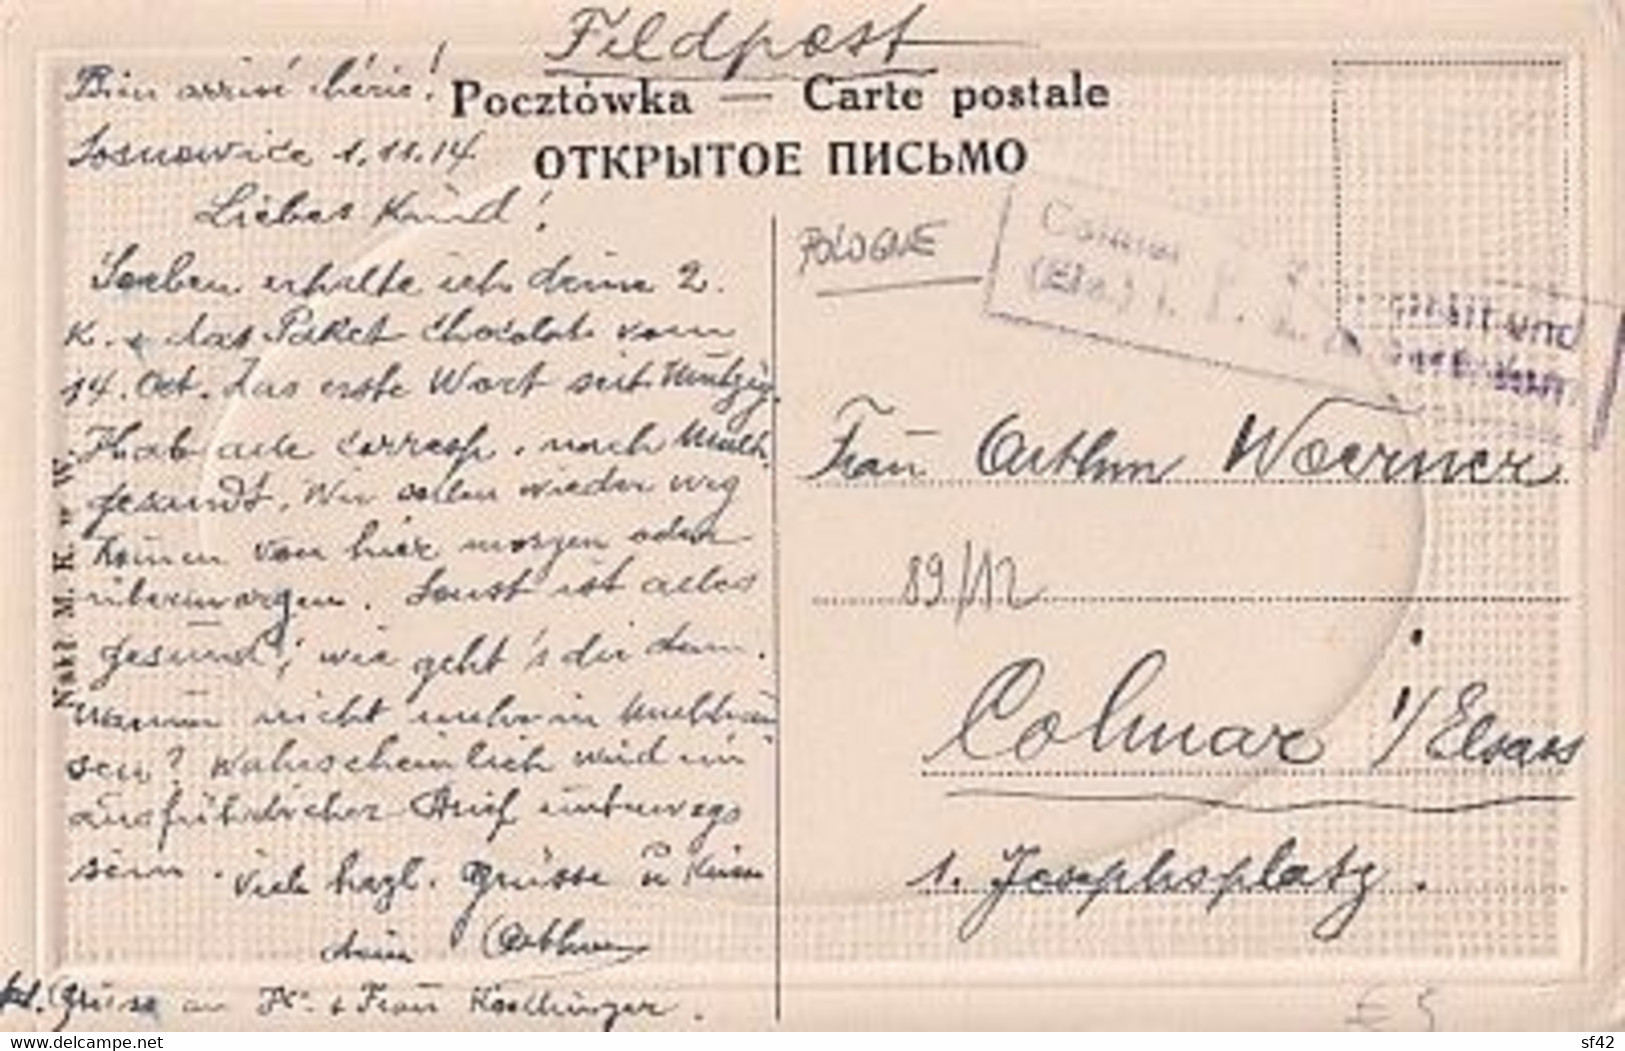 Feldpost
Pocztówka — Carte postale
ОТКРЫТОЕ ПИСЬМО
Bien arrivé chérie!
Sosnowice 1.11.14
Liebes Kind!
Soeben erhalte ich deine 2.
K. & das Paket Chocolat vom
14. Oct. Das erste Wort seit Mutzig.
Hab alle corresp. nach Mülh.
gesandt. Wir sollen wieder weg
kommen von hier morgen oder
übermorgen. Sonst ist alles
gesund; wie geht's dir denn.
Warum nicht mehr in Mülhau
sen? Wahrscheinlich wird ein
ausführlicher Brief unterwegs
sein. Viele herzl. Grüsse u
dein Arthur
Grüsse an H. & Frau
Nakł. M. K. w W.
POLOGNE
Colmar
(Els.)
Frau Arthur Woerner
89/112
Colmar i/Elsass
1. Josephsplatz.
€ 5
delcampe.net
sf42